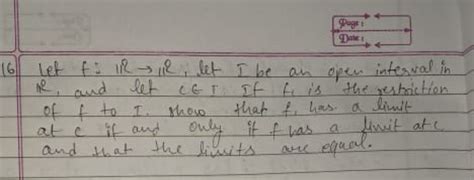 Page:
Date:
16 Let f: ℝ → ℝ, let I be an open interval in
ℝ, and let c ∈ I. If f₁ is the restriction
of f to I. show that f₁ has a limit
at c if and only if f has a limit at c
and that the limits are equal.